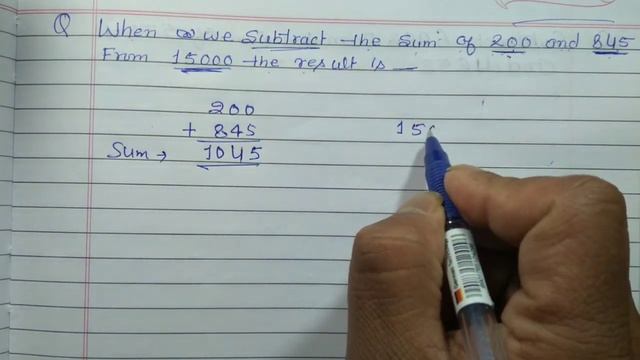 Q When we Subtract the Sum of 200 and 845
From 15000 the result is __
200
+ 845
Sum → 1045
15